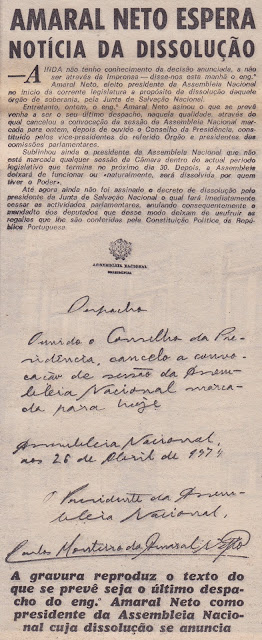 AMARAL NETO ESPERA
NOTÍCIA DA DISSOLUÇÃO
—AINDA não tenho conhecimento da decisão anunciada, a não
ser através da Imprensa — disse-nos esta manhã o eng.º
Amaral Neto, eleito presidente da Assembleia Nacional
no início da corrente legislatura a propósito da dissolução daquele
órgão de soberania, pela Junta de Salvação Nacional.
Entretanto, ontem, o eng.º Amaral Neto assinou o que se prevê
venha a ser o seu último despacho, naquela qualidade, através do
qual cancelou a convocação da sessão da Assembleia Nacional mar-
cada para ontem, depois de ouvido o Conselho da Presidência, cons-
tituído pelos vice-presidentes do referido Órgão e presidentes das
comissões parlamentares.
Sublinhou ainda o presidente da Assembleia Nacional que não
está marcada qualquer sessão da Câmara dentro do actual período
legislativo que termina no próximo dia 30. Depois, a Assembleia
deixará de funcionar ou «naturalmente, será dissolvida por quem
tiver o Poder».
Até agora ainda não foi assinado o decreto de dissolução pelo
presidente da Junta de Salvação Nacional o qual fará imediatamente
cessar as actividades parlamentares, anulando consequentemente o
mandato dos deputados que desse modo deixam de usufruir as
regalias que lhe são conferidas pela Constituição Política da Repú-
blica Portuguesa.
ASSEMBLEIA NACIONAL
Despacho
Ouvido o Conselho da Pre-
sidência, cancelo a convo-
cação de sessão da Assem-
bleia Nacional marca-
da para hoje
Assembleia Nacional,
aos 26 de Abril de 1974
O Presidente da Assem-
bleia Nacional,
Carlos Monteiro do Amaral Netto
A gravura reproduz o texto do
que se prevê seja o último despa-
cho do eng.º Amaral Neto como
presidente da Assembleia Nacio-
nal cuja dissolução se anuncia